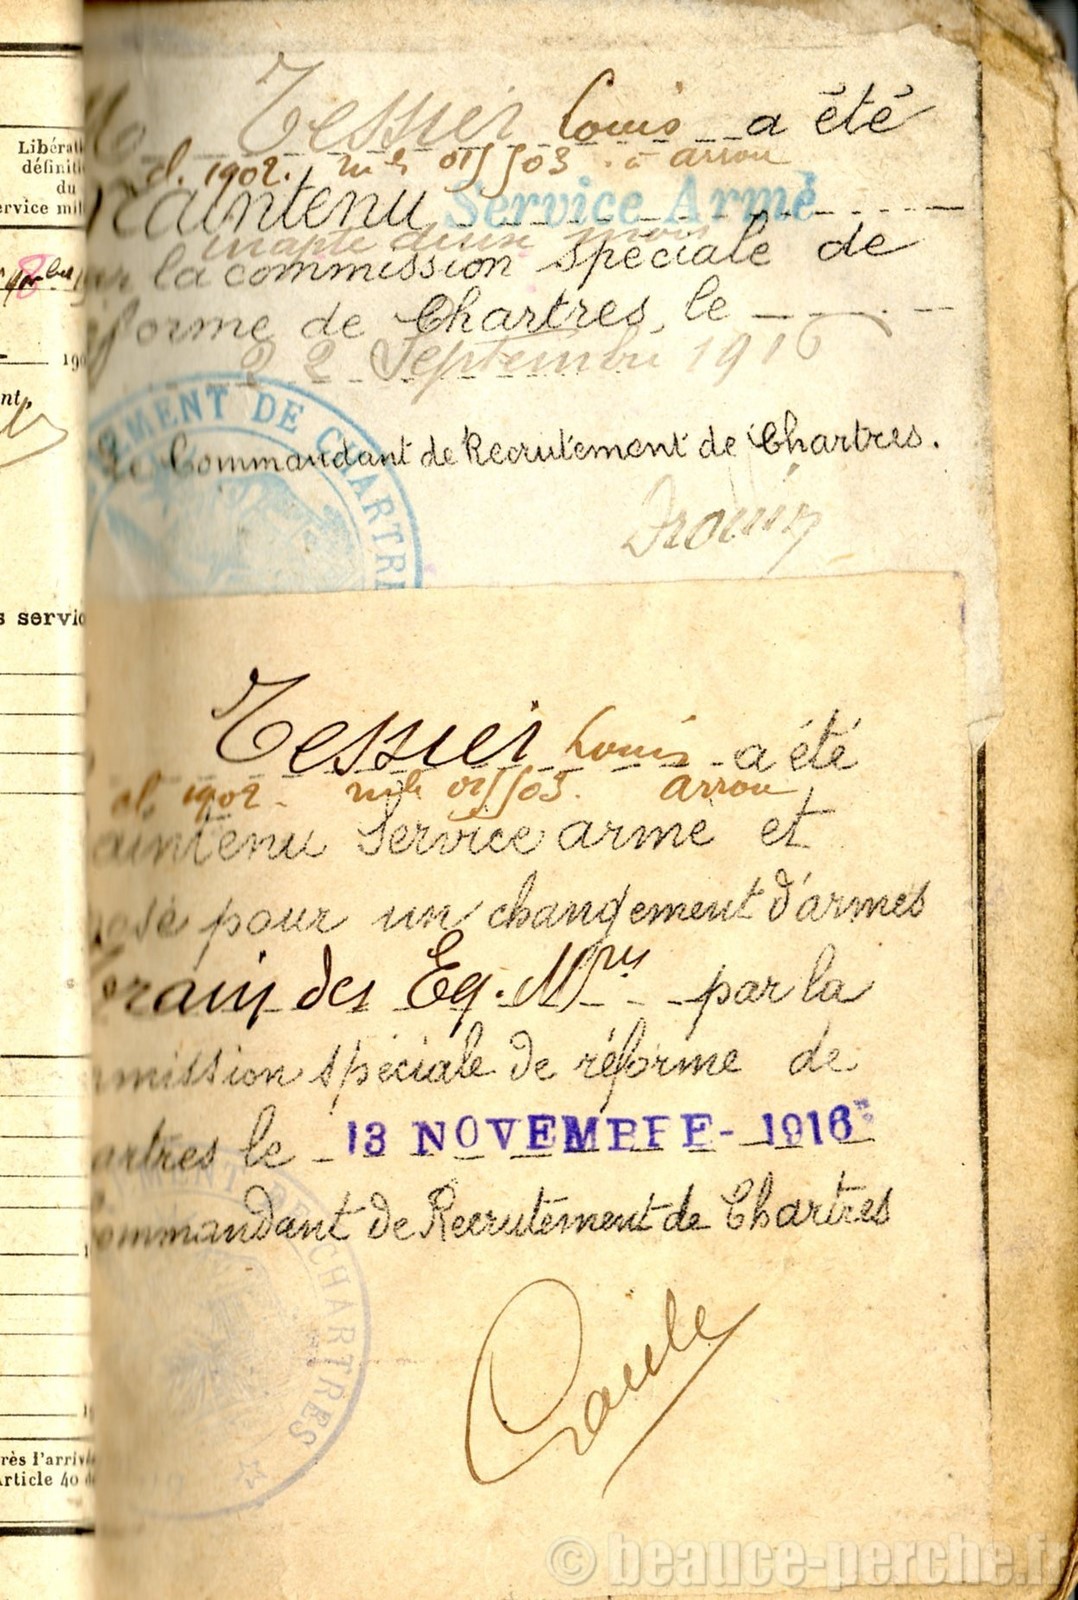 Libérat
définiti
du
ervice mil
190
nt,
s servic
rès l'arriv
Article 40 de
M Tessier Louis a été
cl. 1902. mle 01503. à arrou
Maintenu Service Armé
inapte deux mois
par la commission spéciale de
réforme de Chartres, le
22 Septembre 1916
MENT DE CHARTRE
Le Commandant de Recrutement de Chartres.
Drouin
Tessier Louis a été
cl. 1902. mle 01503. arrou
aintenu Service armé et
posé pour un changement d'armes
Train des Eq. Mres par la
mmission spéciale de réforme de
artres le 13 NOVEMBRE 1916
MENT DE CHARTRES
ommandant de Recrutement de Chartres
© beauce-perche.fr